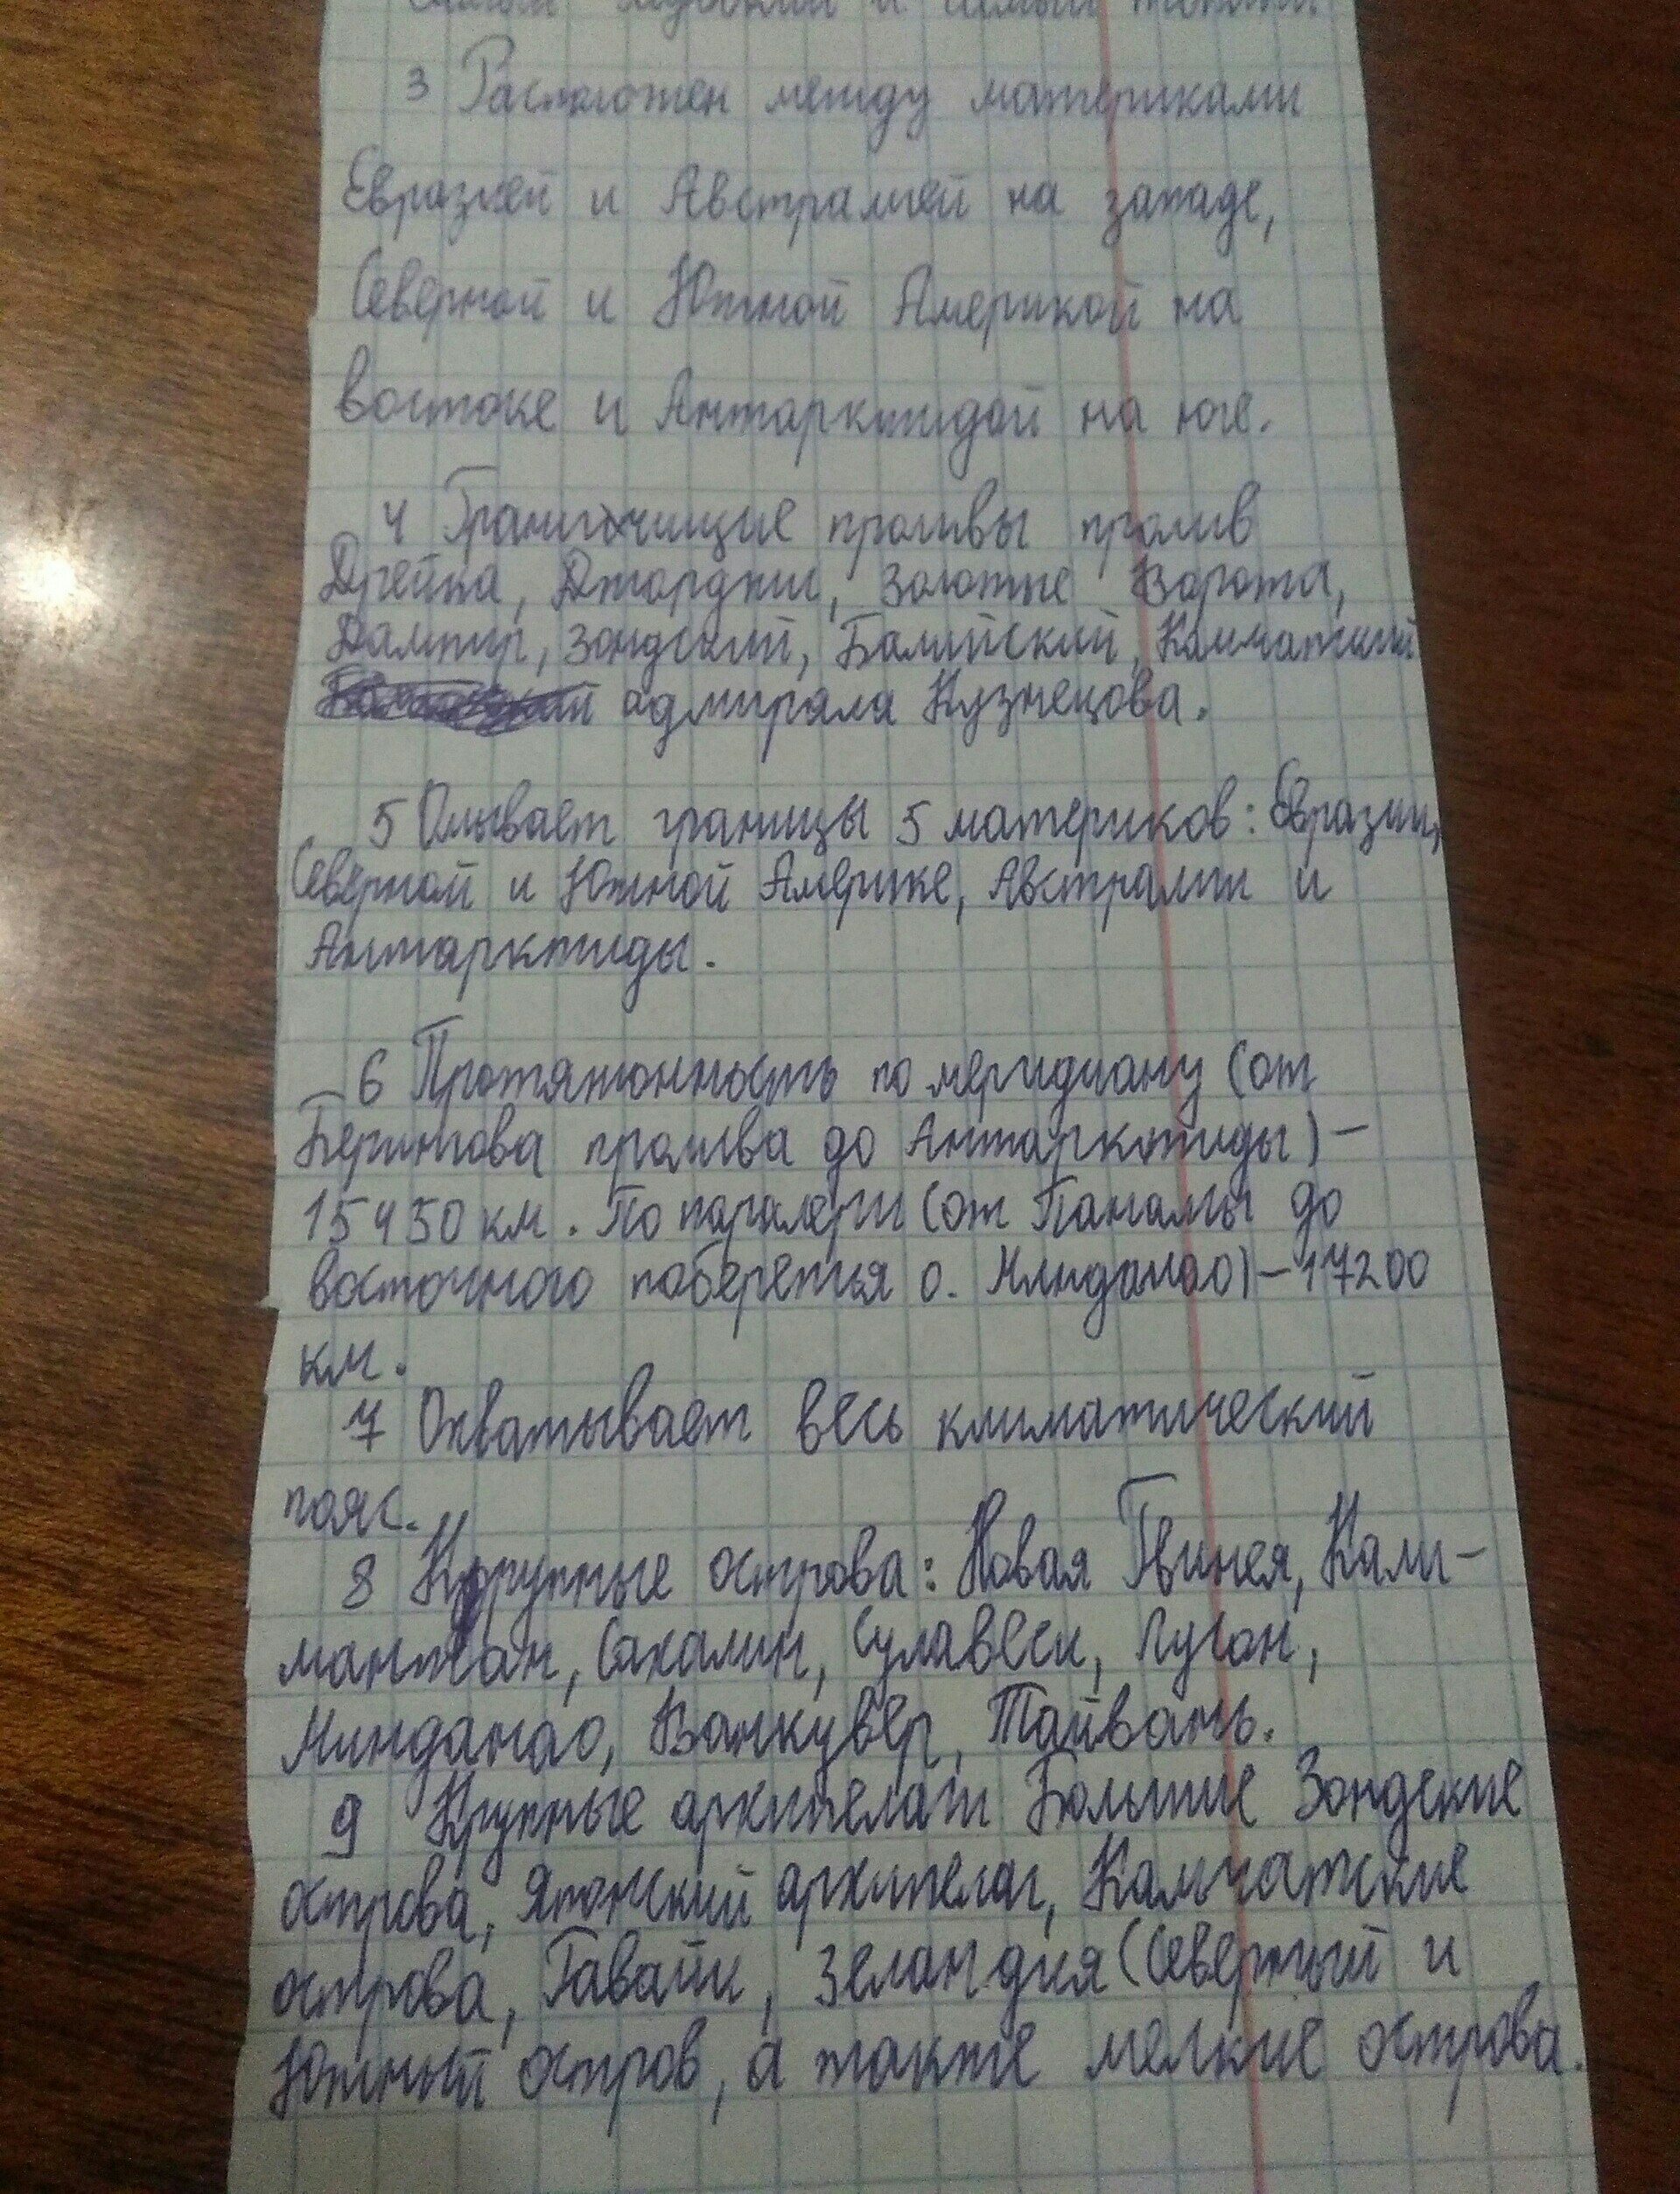 самый глубокий и самый тёплый.
3 Расположен между материками
Евразией и Австралией на западе,
Северной и Южной Америкой на
востоке и Антарктидой на юге.
4 проливы пролив
Дрейка, Джорджии, Золотые Ворота,
Дампир, Зондский, Балийский, Камчатский
адмирала Кузнецова.
5 Омывает границы 5 материков: Евразии,
Северной и Южной Америке, Австралии и
Антарктиды.
6 Протяжонность по меридиану (от
Берингова пролива до Антарктиды) –
15450 км. По паралери (от Панамы до
восточного побережья о. Минданао) – 17200
км.
7 Охватывает весь климатический
пояс.
8 Крупные острова: Новая Гвинея, Кали-
мантан, Сахалин, Сулавеси, Лусон,
Минданао, Ванкувер, Тайвань.
9 Крупные архипелаги Большие Зондские
острова, Японский архипелаг, Камчатские
острова, Гавайи, Зеландия (Северный и
Южный остров, а также мелкие острова.